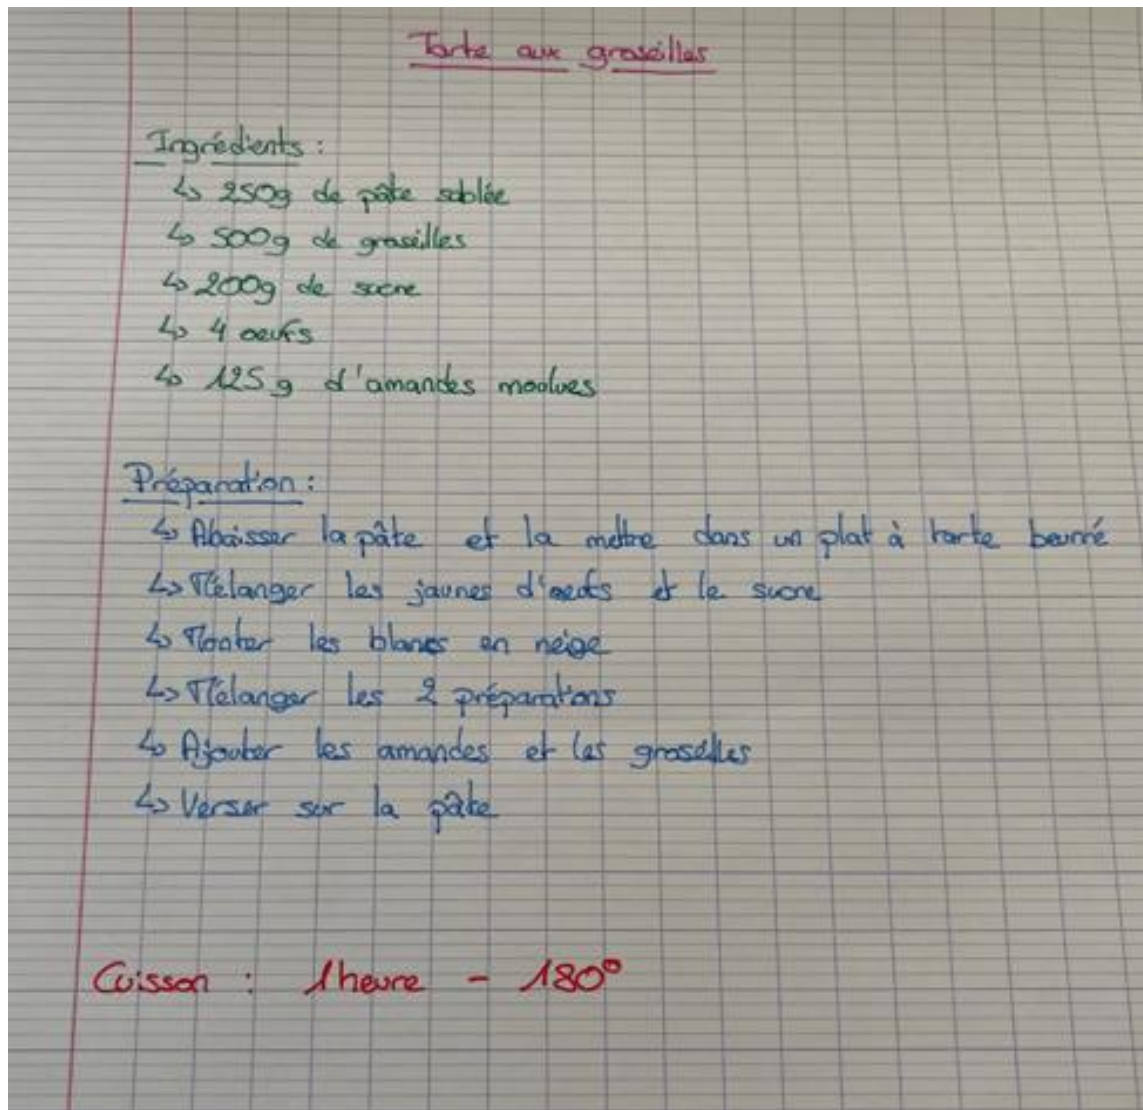 Tarte aux groseilles
Ingrédients :
↳ 250g de pâte sablée
↳ 500g de groseilles
↳ 200g de sucre
↳ 4 oeufs
↳ 125 g d'amandes moolues
Préparation :
↳ Abaisser la pâte et la mettre dans un plat à tarte beurré
↳ Mélanger les jaunes d'oeufs et le sucre
↳ Monter les blancs en neige
↳ Mélanger les 2 préparations
↳ Ajouter les amandes et les groseilles
↳ Verser sur la pâte
Cuisson : 1 heure - 180°